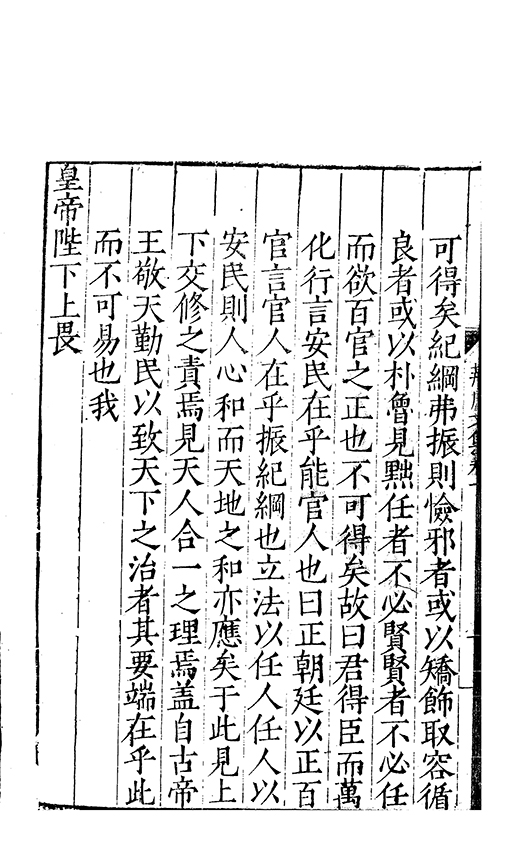 可得矣紀綱弗振則憸邪者或以矯飾取容循
良者或以朴魯見黜任者不必賢賢者不必任
而欲百官之正也不可得矣故曰君得臣而萬
化行言安民在乎能官人也曰正朝廷以正百
官言官人在乎振紀綱也立法以任人任人以
安民則人心和而天地之和亦應矣于此見上
下交修之責焉見天人合一之理焉盖自古帝
王敬天勤民以致天下之治者其要端在乎此
而不可易也我
皇帝陛下上畏